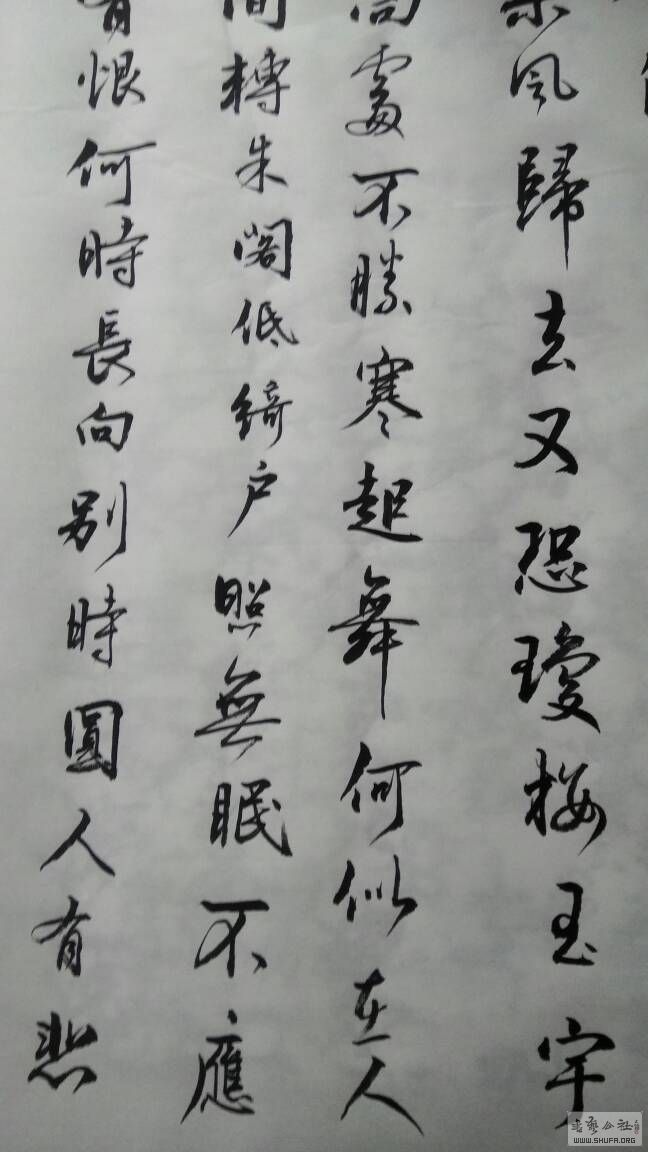 乘風歸去又恐瓊樓玉宇
高處不勝寒起舞何似在人
間轉朱閣低綺户照無眠不應
有恨何時長向别時圓人有悲
书艺公社
WWW.SHUFA.ORG